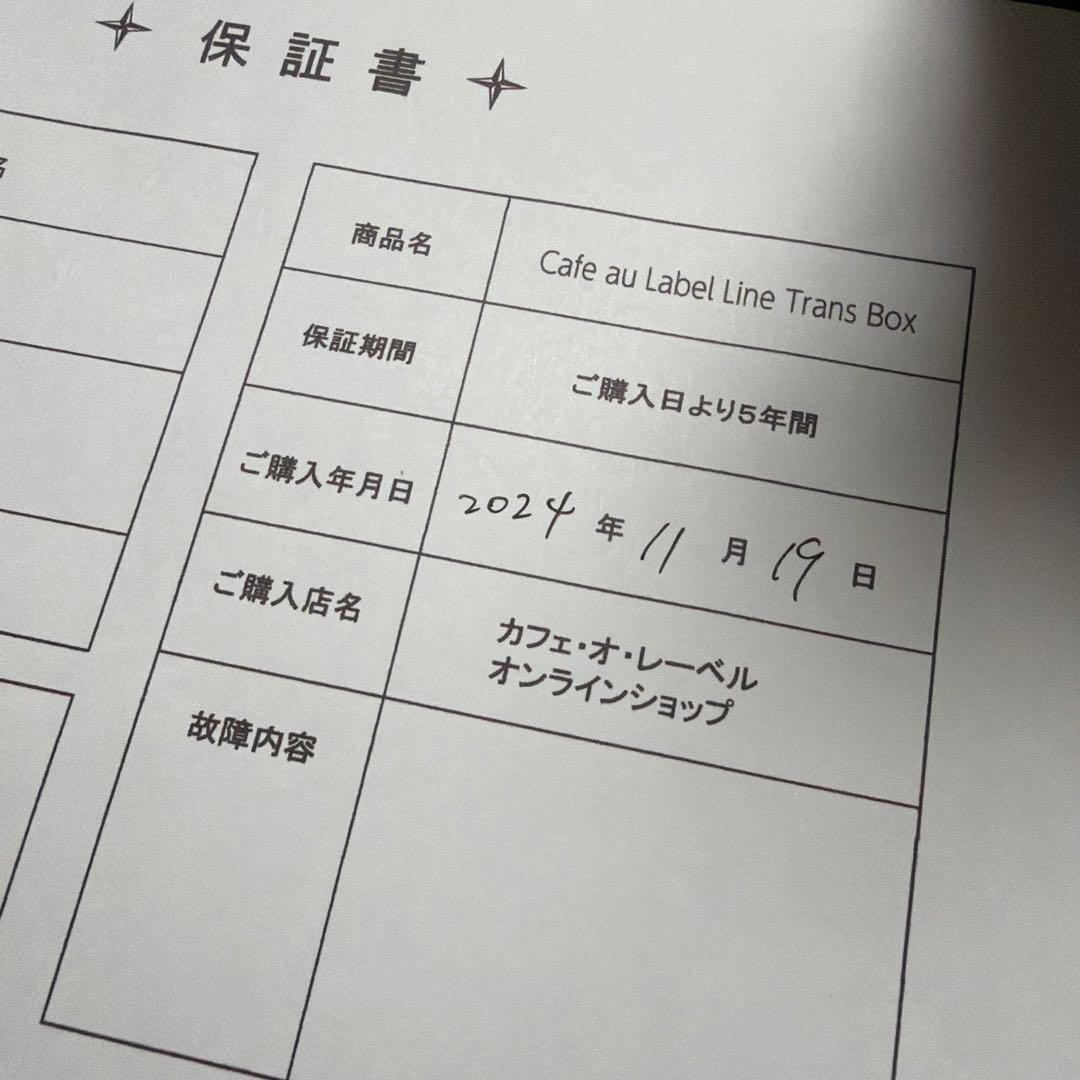 保証書
商品名
Cafe au Label Line Trans Box
保証期間
ご購入日より5年間
ご購入年月日
2024 年 11 月 19 日
ご購入店名
カフェ・オ・レーベル
オンラインショップ
故障内容